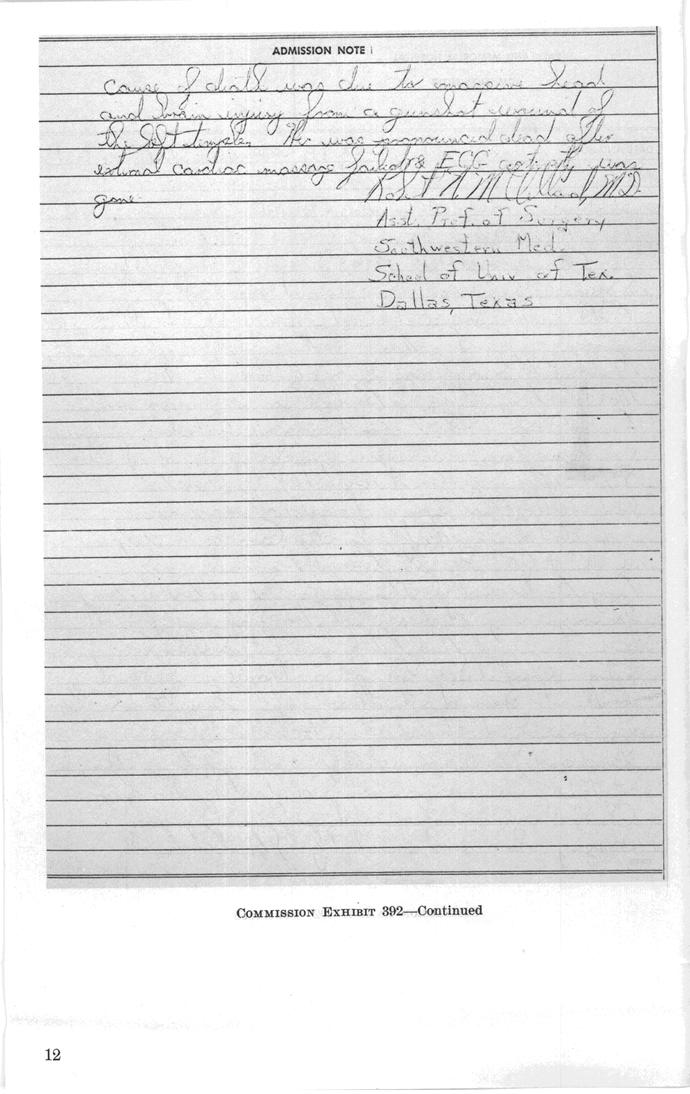 ADMISSION NOTE
Cause of death was due to massive head
and brain injury from a gunshot wound of
the left temple. He was pronounced dead after
external cardiac massage failed & ECG activity was
gone.
Robert N. McClelland, M.D.
Asst. Prof. of Surgery
Southwestern Med.
School of Univ of Tex.
Dallas, Texas
COMMISSION EXHIBIT 392—Continued
12